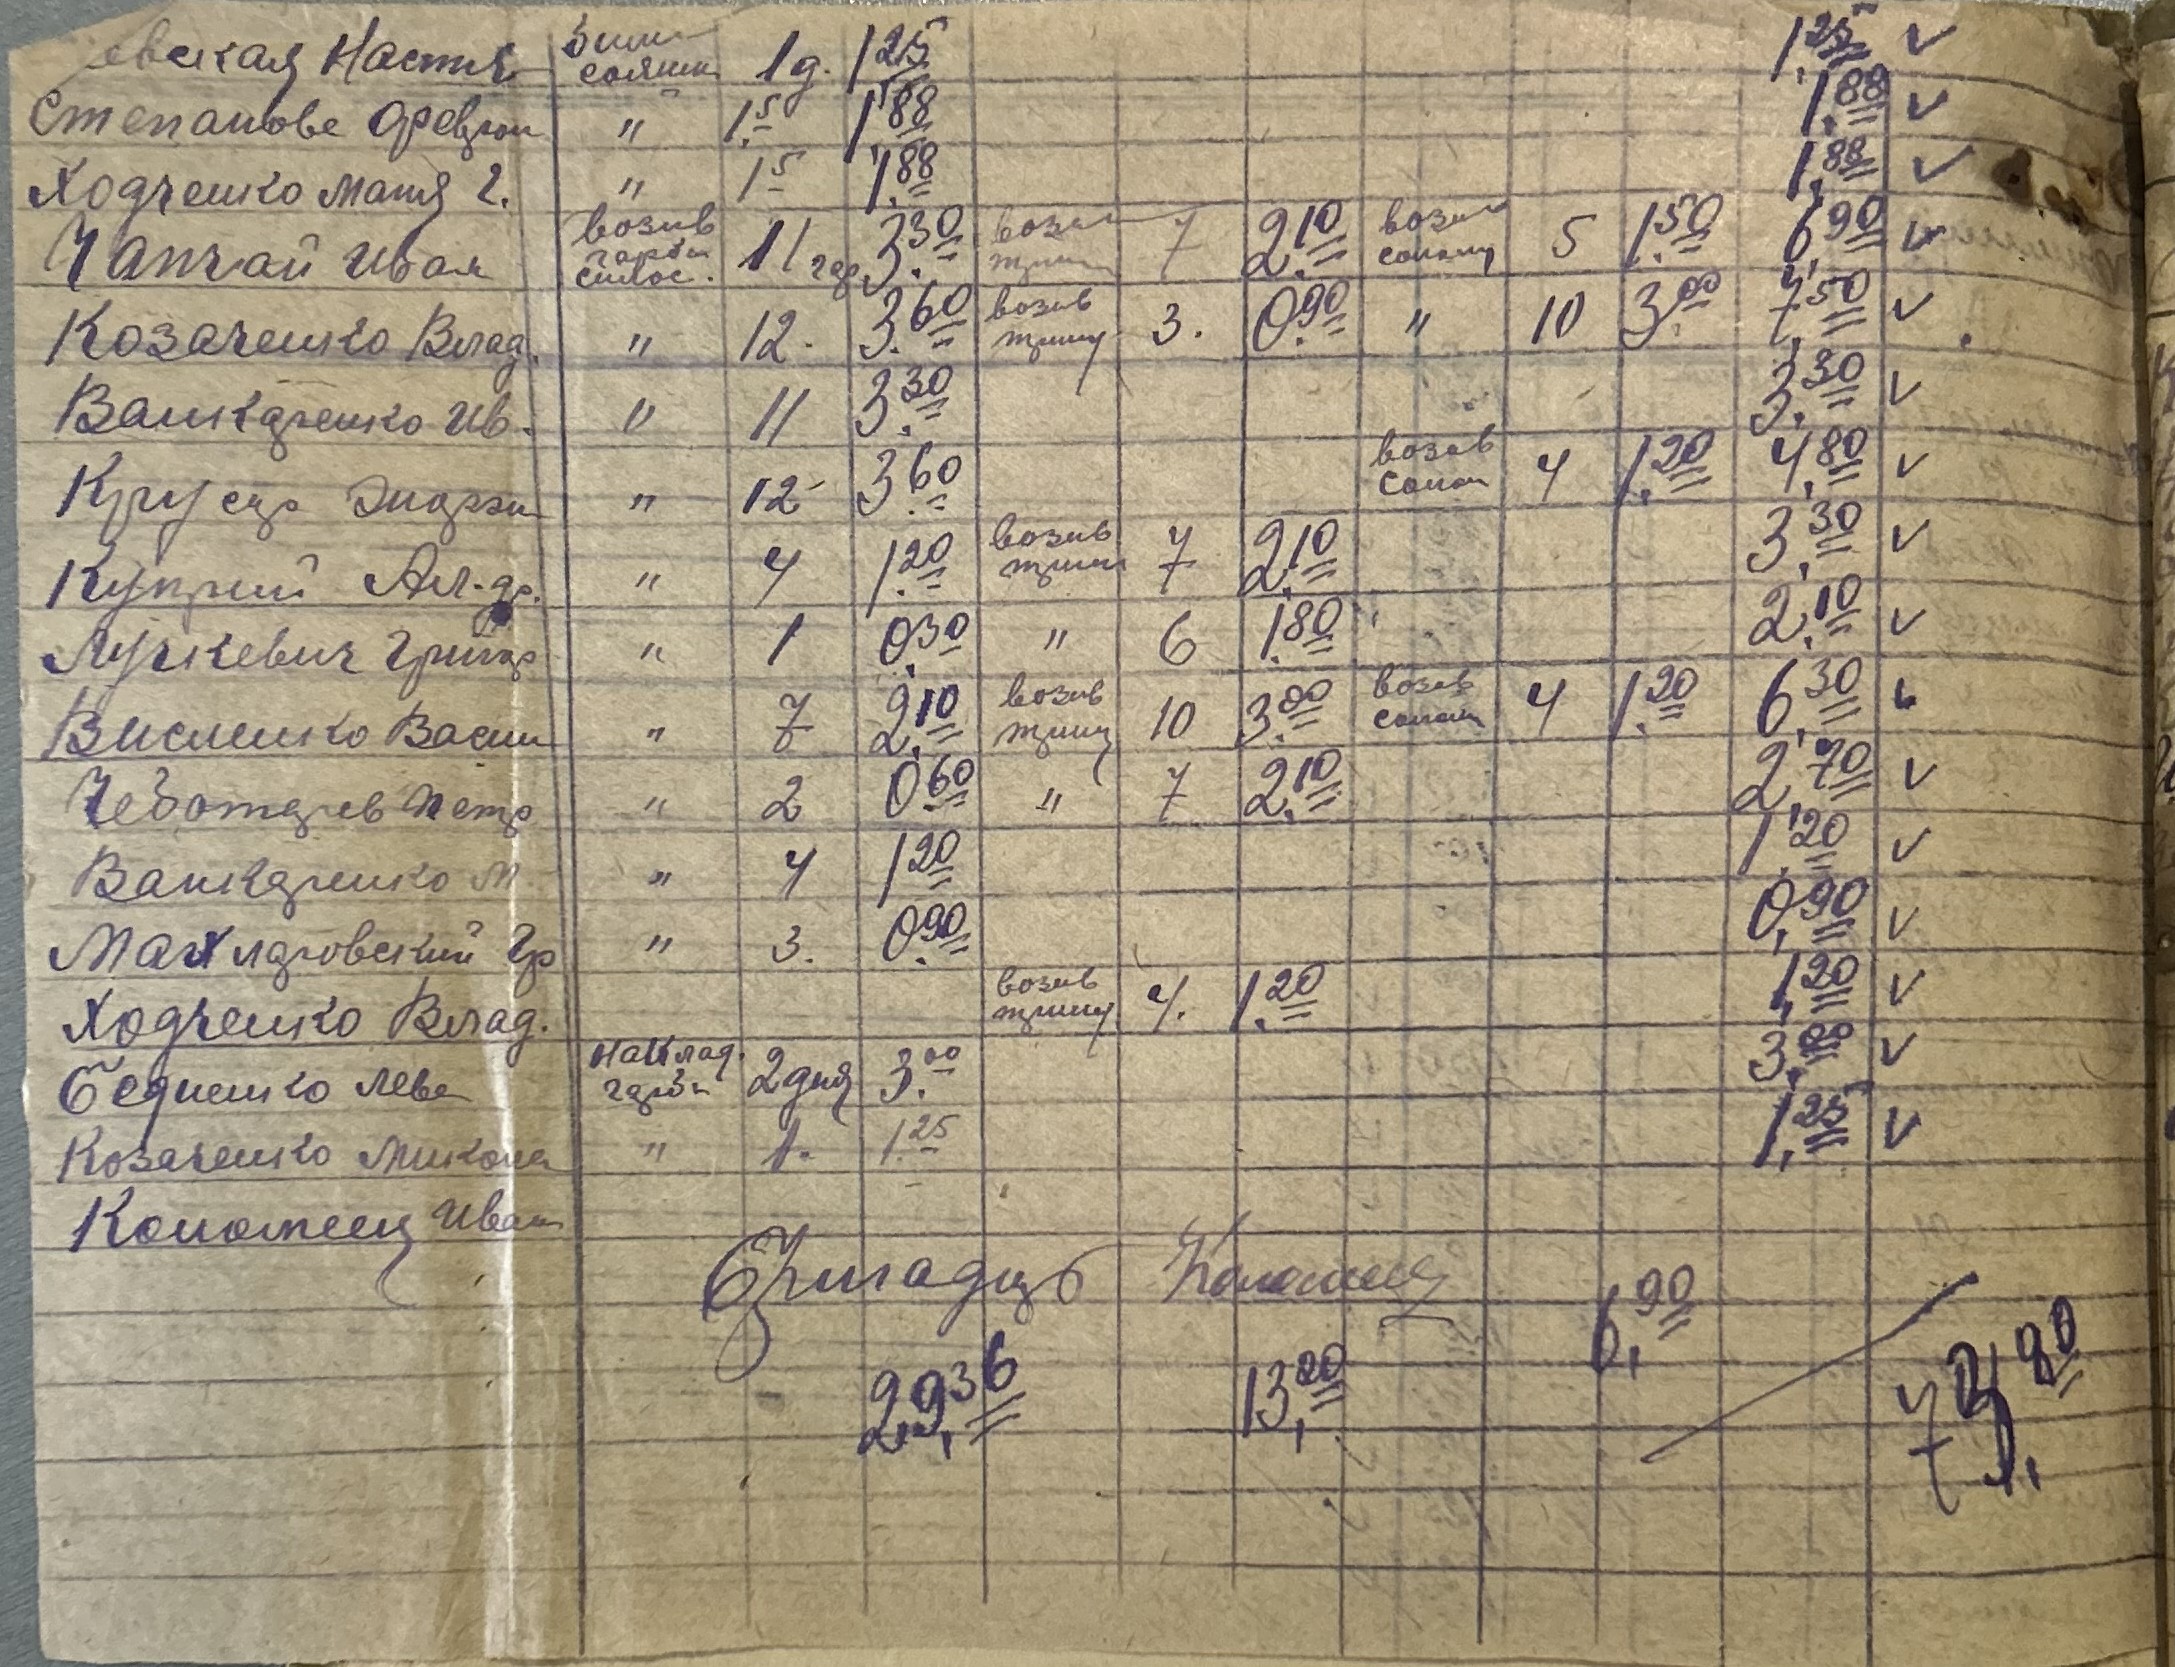 евская Настя 1д. 1,25 1,25 ✓
Степанова " 1,5 1,88 1,88 ✓
Ходченко Мария Г. " 1,5 1,88 1,88 ✓
Чапчай Иван возив гарби силос. 11 гар 3,30 возив 7 2,10 возив солому 5 1,50 6,90 ✓
Козаченко Влад. " 12. 3,60 возив 3. 0,90 " 10 3,00 7,50 ✓
Ванжарченко Ив. " 11 3,30 3,30 ✓
Андрон " 12 3,60 возив солом 4 1,20 4,80 ✓
Куприй Ал-др. " 4 1,20 возив 7 2,10 3,30 ✓
Лучкевич Григор " 1 0,30 " 6 1,80 2,10 ✓
Висленко Васил " 7 2,10 возив 10 3,00 возив солом 4 1,20 6,30 ✓
Чеботарев Петр " 2 0,60 " 7 2,10 2,70 ✓
Ванжарченко М. " 4 1,20 1,20 ✓
Гр " 3. 0,90 0,90 ✓
Ходченко Влад. возив 4. 1,20 1,20 ✓
Бедненко Лева наклад. гарби 2 дня 3,00 3,00 ✓
Козаченко Микола " 1. 1,25 1,25 ✓
Коломеец Иван
Бригадир Коломеец
6,90
29,36 13,20